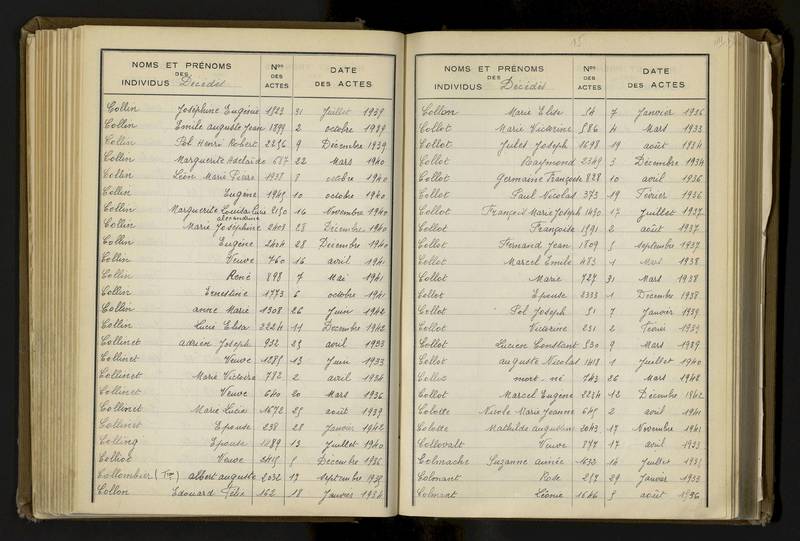 NOMS ET PRÉNOMS
DES
INDIVIDUS Décédés
Nos
DES
ACTES
DATE
DES ACTES
Collin Joséphine Eugénie 1523 31 Juillet 1939
Collin Emile auguste Jean 1899 2 octobre 1939
Collin Pol Henri Robert 2256 9 Décembre 1939
Collin Marguerite Adelaïde 687 22 Mars 1940
Collin Léon Marie Pierre 1938 8 octobre 1940
Collin Eugène 1949 10 octobre 1940
Collin Marguerite Louise 2150 16 Novembre 1940
alexandrine
Collin Marie Joséphine 2408 28 Décembre 1940
Collin Eugène 2404 28 Décembre 1940
Collin Veuve 760 16 avril 1941
Collin René 898 7 Mai 1941
Collin Ernestine 1773 6 octobre 1941
Collin anne Marie 1308 26 Juin 1942
Collin Lucie Elisa 2224 11 Décembre 1942
Collinet adrien Joseph 932 25 avril 1933
Collinet Veuve 1285 13 Juin 1933
Collinet Marie Victoire 782 2 avril 1934
Collinet Veuve 640 20 Mars 1936
Collinet Marie Lucie 1672 25 août 1939
Collinet Epouse 238 28 Janvier 1942
Colling Epouse 1289 13 Juillet 1940
Colliot Veuve 2415 5 Décembre 1936
Collombier albert auguste 2032 17 septembre 1938
Collon Edouard Félix 162 18 Janvier 1934
15
NOMS ET PRÉNOMS
DES
INDIVIDUS Décédés
Nos
DES
ACTES
DATE
DES ACTES
Collon Marie Elise 54 7 Janvier 1936
Collot Marie Victorine 586 4 Mars 1933
Collot Jules Joseph 1698 19 août 1934
Collot Raymond 2349 3 Décembre 1934
Collot Germaine Françoise 828 10 avril 1936
Collot Paul Nicolas 373 19 Février 1936
Collot François Marie Joseph 1450 17 Juillet 1937
Collot Françoise 1591 2 août 1937
Collot Fernand Jean 1809 5 septembre 1937
Collot Marcel Emile 483 1 Mars 1938
Collot Marie 727 31 Mars 1938
Collot Epouse 2333 1 Décembre 1938
Collot Pol Joseph 51 7 Janvier 1939
Collot Victorine 251 2 Février 1939
Collot Lucien Constant 530 9 Mars 1939
Collot auguste Nicolas 1418 1 Juillet 1940
Collot mort-né 743 26 Mars 1942
Collot Marcel Eugène 2234 12 Décembre 1942
Colotte Nicole Marie Jeanne 645 2 avril 1941
Colotte Mathilde augustine 2043 17 Novembre 1941
Collovalt Veuve 877 17 avril 1933
Colmache Suzanne aimée 1632 14 Juillet 1935
Colmant Rose 257 29 Janvier 1933
Colmant Léonie 1646 5 août 1936